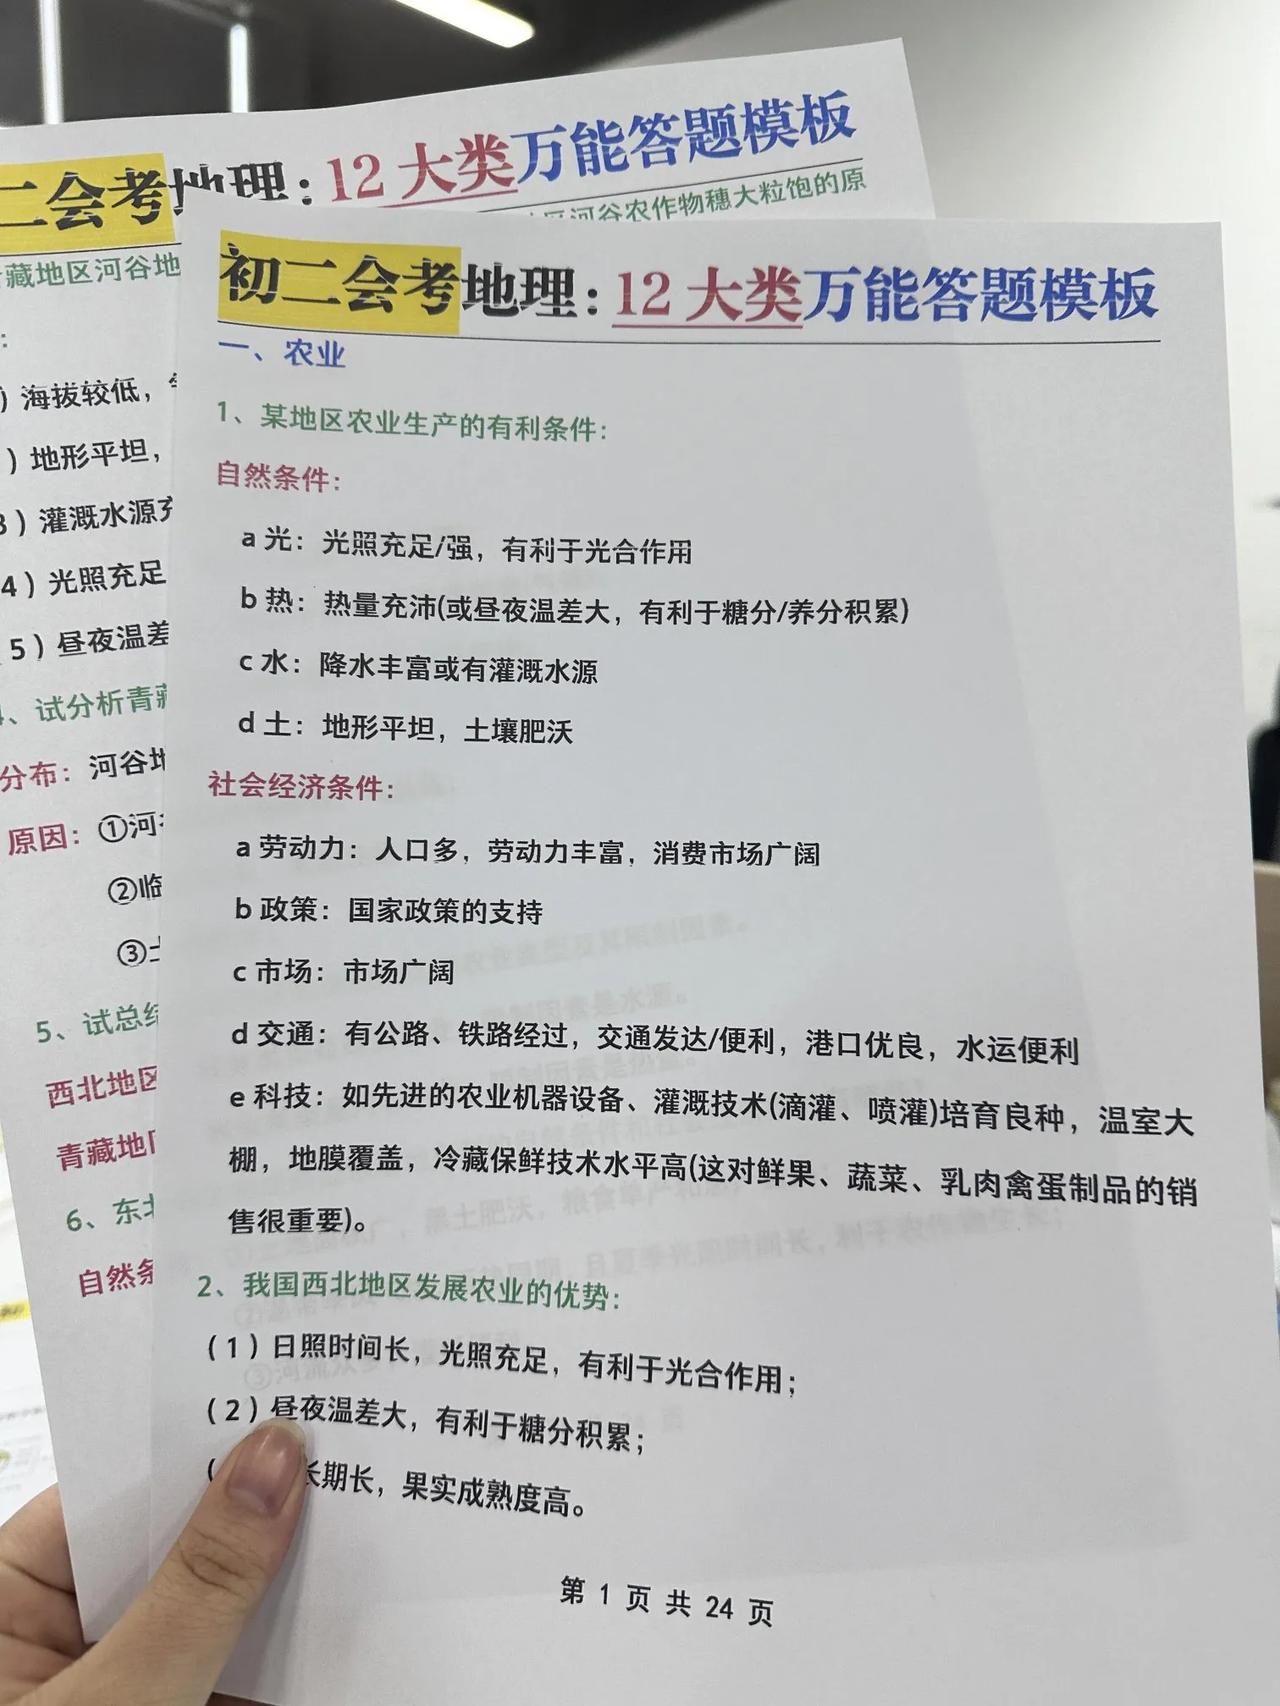 二会考地理：12大类万能答题模板
区河谷农作物穗大粒饱的原
藏地区河谷地
：
）海拔较低，
）地形平坦，
3）灌溉水源充
4）光照充足
5）昼夜温差
、试分析青藏
分布：河谷地
原因：①河谷
②临
③土
5、试总结
西北地区
青藏地区
6、东北
自然条
初二会考地理：12大类万能答题模板
一、农业
1、某地区农业生产的有利条件：
自然条件：
a光：光照充足/强，有利于光合作用
b热：热量充沛(或昼夜温差大，有利于糖分/养分积累)
c水：降水丰富或有灌溉水源
d土：地形平坦，土壤肥沃
社会经济条件：
a劳动力：人口多，劳动力丰富，消费市场广阔
b政策：国家政策的支持
c市场：市场广阔
d交通：有公路、铁路经过，交通发达/便利，港口优良，水运便利
e科技：如先进的农业机器设备、灌溉技术(滴灌、喷灌)培育良种，温室大
棚，地膜覆盖，冷藏保鲜技术水平高(这对鲜果、蔬菜、乳肉禽蛋制品的销
售很重要)。
2、我国西北地区发展农业的优势：
（1）日照时间长，光照充足，有利于光合作用；
（2）昼夜温差大，有利于糖分积累；
（ 长期长，果实成熟度高。
第 1 页 共 24 页